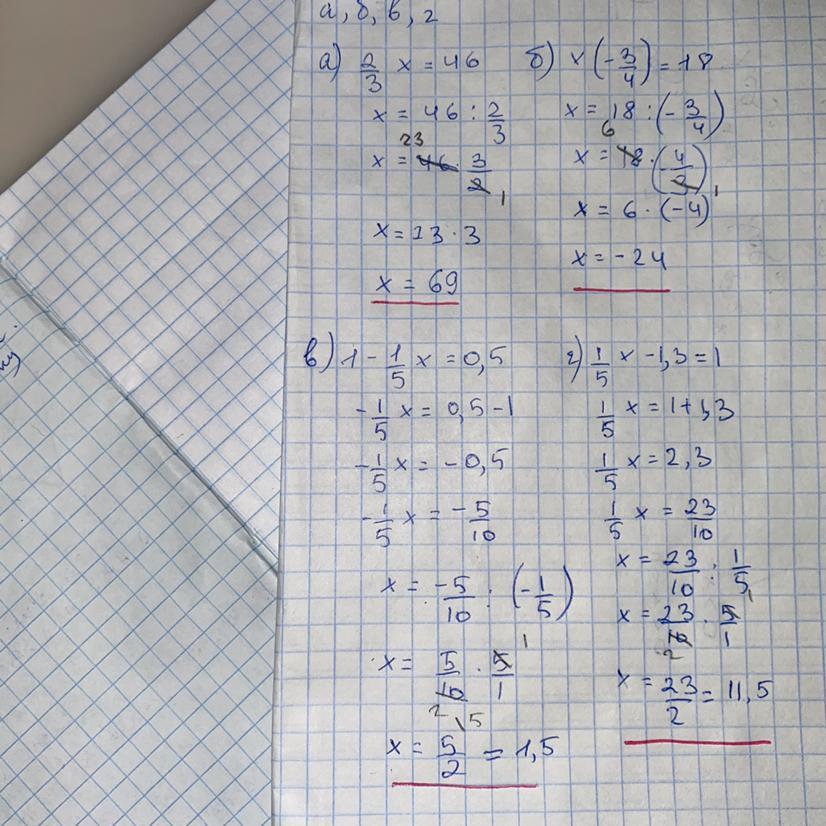 а, б, в, г
а) 2/3 x = 46
x = 46 : 2/3
23
x = 46 · 3/2
1
x = 23 · 3
x = 69
б) x (-3/4) = 18
x = 18 : (-3/4)
6
x = 18 · (-4/3)
1
x = 6 · (-4)
x = -24
в) 1 - 1/5 x = 0,5
-1/5 x = 0,5 - 1
-1/5 x = -0,5
-1/5 x = -5/10
x = -5/10 : (-1/5)
1
x = 5/10 · 5/1
2
x = 5/2 = 1,5
г) 1/5 x - 1,3 = 1
1/5 x = 1 + 1,3
1/5 x = 2,3
1/5 x = 23/10
x = 23/10 : 1/5
1
x = 23/10 · 5/1
2
x = 23/2 = 11,5